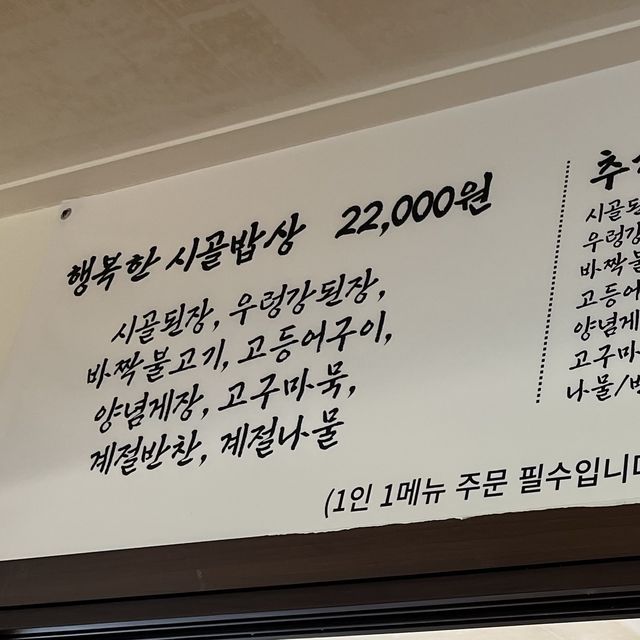 행복한 시골밥상 22,000원
시골된장, 우렁강된장,
바짝불고기, 고등어구이,
양념게장, 고구마묵,
계절반찬, 계절나물
(1인 1메뉴 주문 필수입니다
시골된
우렁강
바짝불
고등어
양념게
고구마
나물/